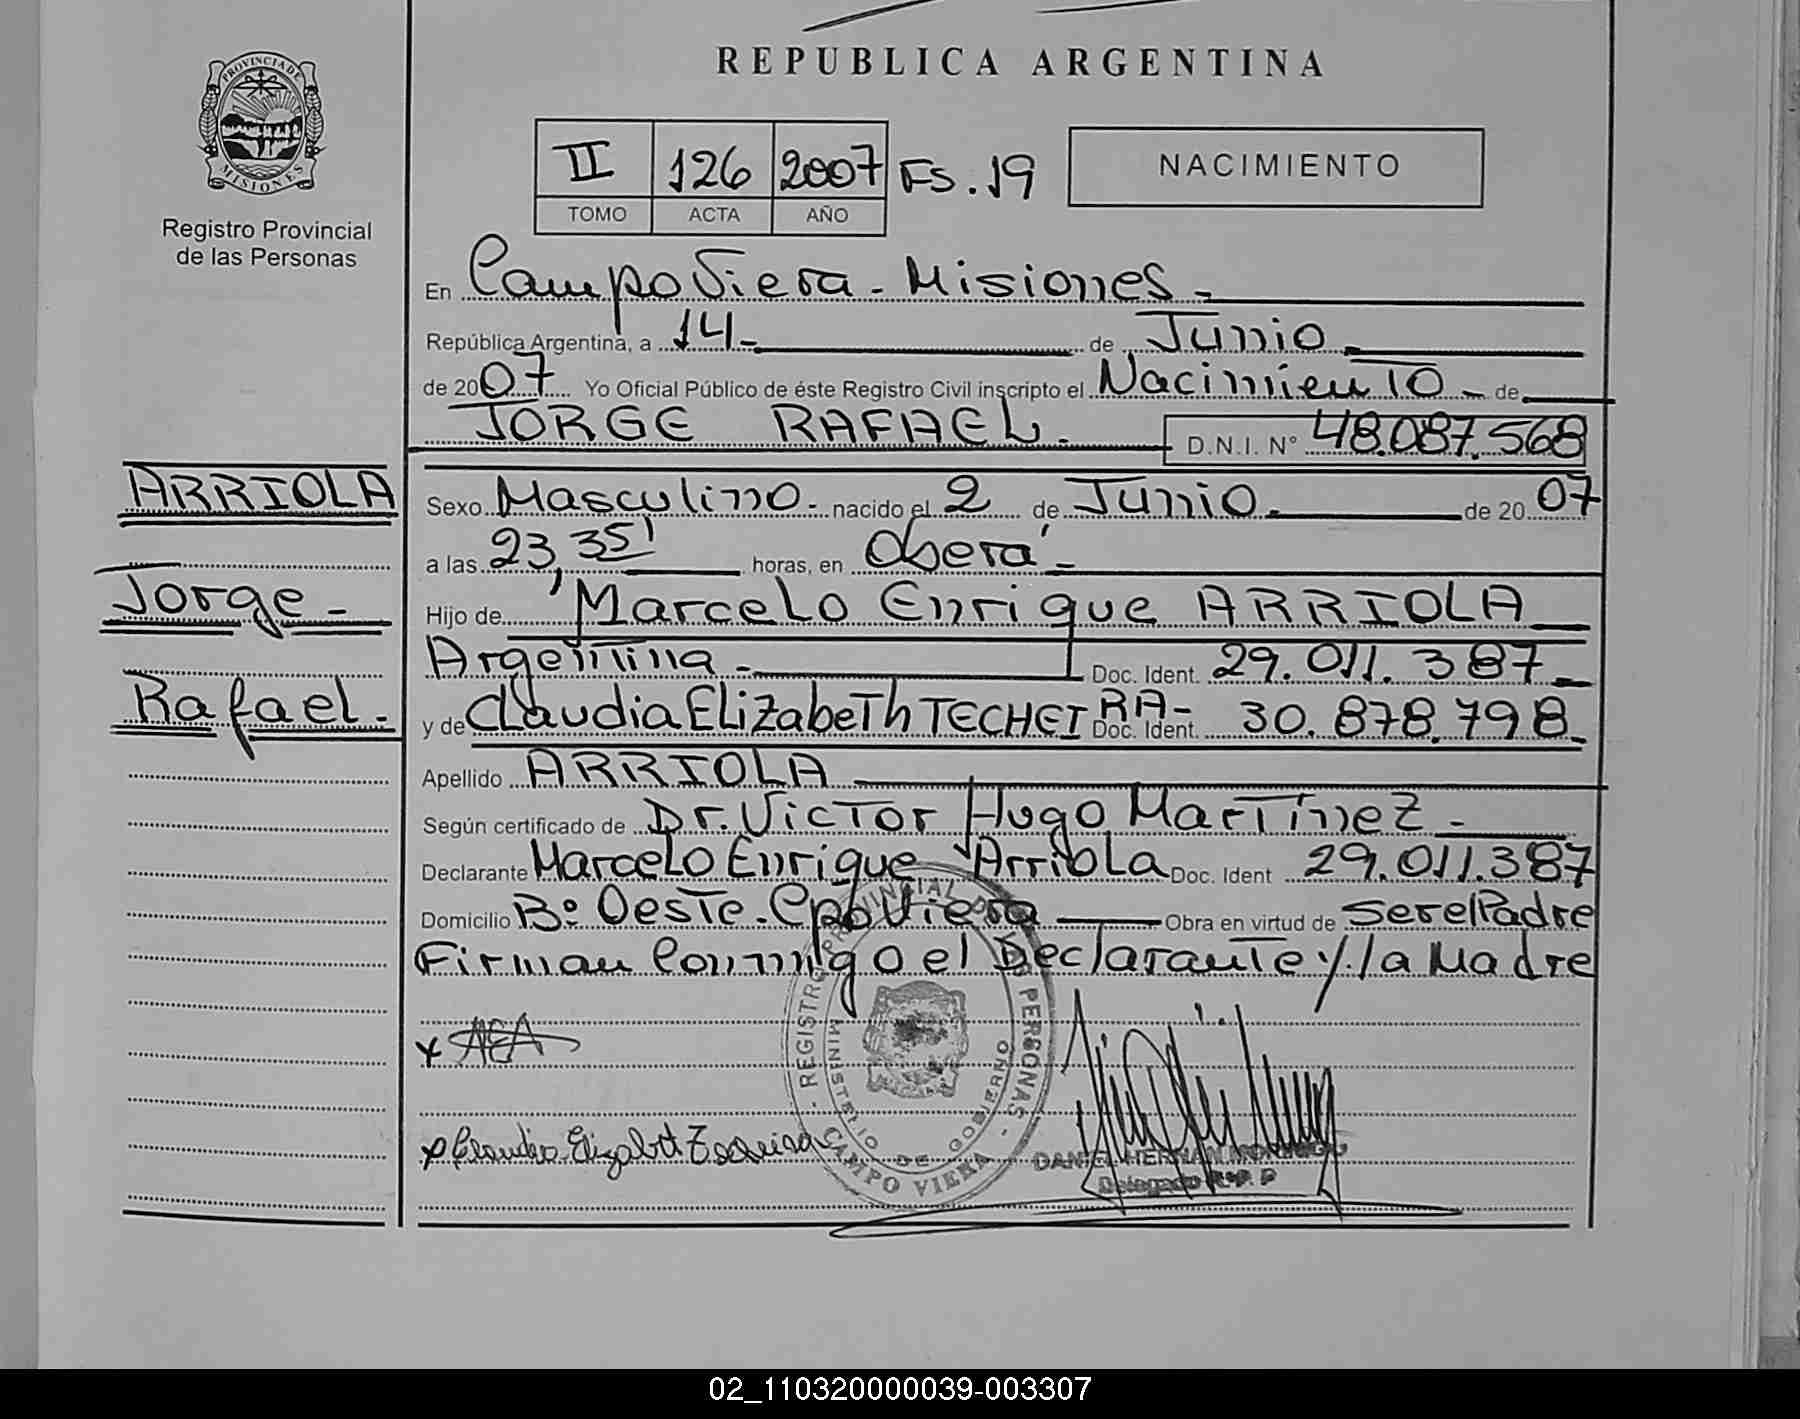 REPUBLICA ARGENTINA
PROVINCIA DE MISIONES
Registro Provincial
de las Personas
II 126 2007 Fs. 19
TOMO ACTA AÑO
NACIMIENTO
En Campo Viera - Misiones -
República Argentina, a 14 - de Junio
de 2007 Yo Oficial Público de éste Registro Civil inscripto el Nacimiento - de
JORGE RAFAEL. D.N.I. N° 48.087.568
ARRIOLA
Jorge -
Rafael -
Sexo Masculino - nacido el 2 de Junio. de 20 07
a las 23,35' horas, en Oberá -
Hijo de Marcelo Enrique ARRIOLA
Argentina - Doc. Ident. 29.011.387
y de Claudia Elizabeth TECHEIRA - Doc. Ident. 30.878.798
Apellido ARRIOLA
Según certificado de Dr. Victor Hugo Martínez -
Declarante Marcelo Enrique Arriola Doc. Ident 29.011.387
Domicilio B° Oeste - Cpo Viera Obra en virtud de ser el Padre
Firman Conmigo el Declarante y la Madre
REGISTRO PROVINCIAL DE LAS PERSONAS
MINISTERIO DE GOBIERNO
CAMPO VIERA
x AEA
x Claudia Elizabet
DANIEL HERNAN
Delegado R.P.P
02_110320000039-003307